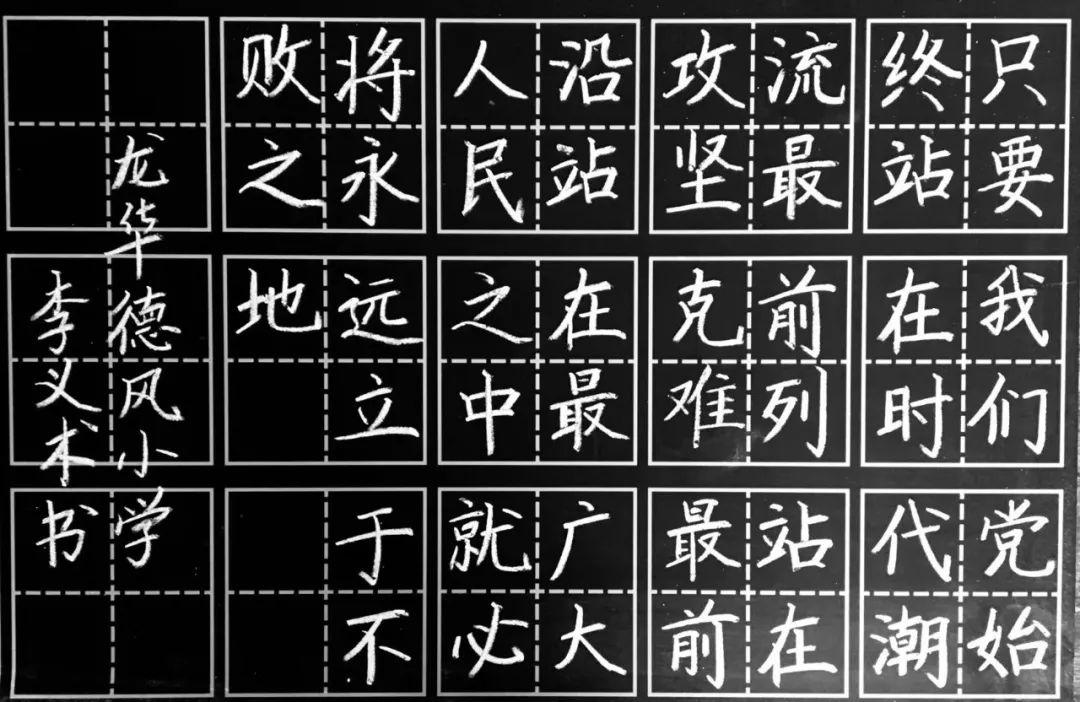 只要我们党始
终站在时代潮
流最前列站在
攻坚克难最前
沿站在最广大
人民之中就必
将永远立于不
败之地
龙华德风小学
李义术书